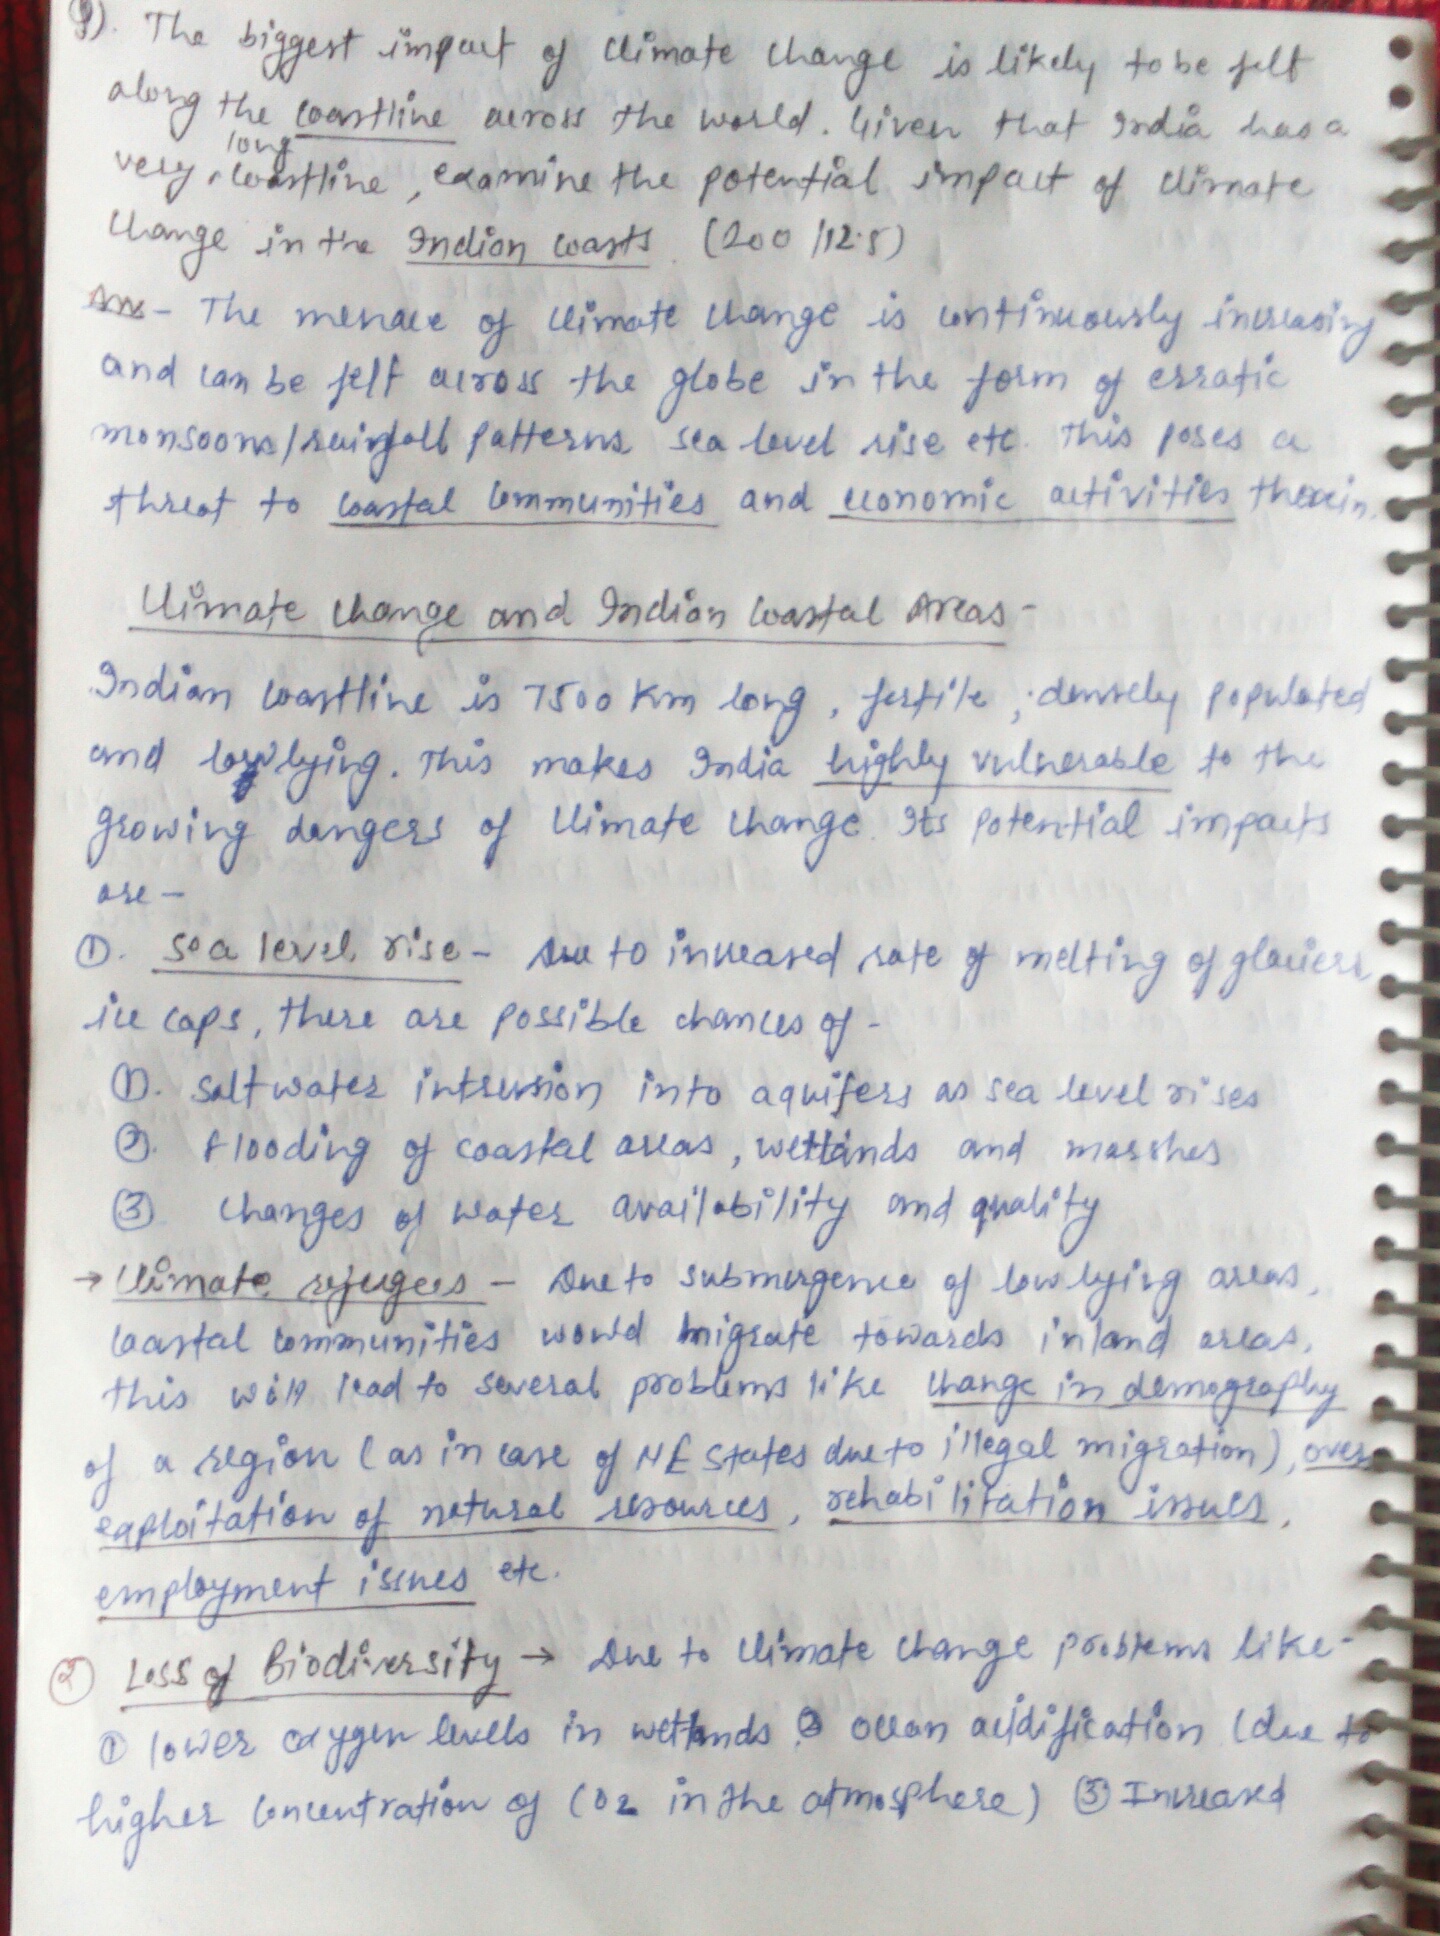 9). The biggest impact of climate change is likely to be felt
along the coastline across the world. Given that India has a
very long coastline, examine the potential impact of climate
change in the Indian coasts. (200/12.5)
Ans - The menace of climate change is continuously increasing
and can be felt across the globe in the form of erratic
monsoons/rainfall patterns sea level rise etc. This poses a
threat to coastal communities and economic activities therein.
Climate change and Indian Coastal Areas -
Indian coastline is 7500 Km long, fertile, densely populated
and low lying. This makes India highly vulnerable to the
growing dangers of climate change. Its potential impacts
are -
①. Sea level rise - Due to increased rate of melting of glaciers,
ice caps, there are possible chances of -
①. Salt water intrusion into aquifers as sea level rises
②. flooding of coastal areas, wetlands and marshes
③ Changes of water availability and quality
→ Climate refugees - Due to submergence of low lying areas,
coastal communities would migrate towards inland areas.
This will lead to several problems like change in demography
of a region (as in case of NE States due to illegal migration), over
exploitation of natural resources, rehabilitation issues,
employment issues etc.
② Loss of Biodiversity → Due to climate change problems like -
① lower oxygen levels in wetlands ② ocean acidification (due to
higher concentration of CO2 in the atmosphere) ③ Increased